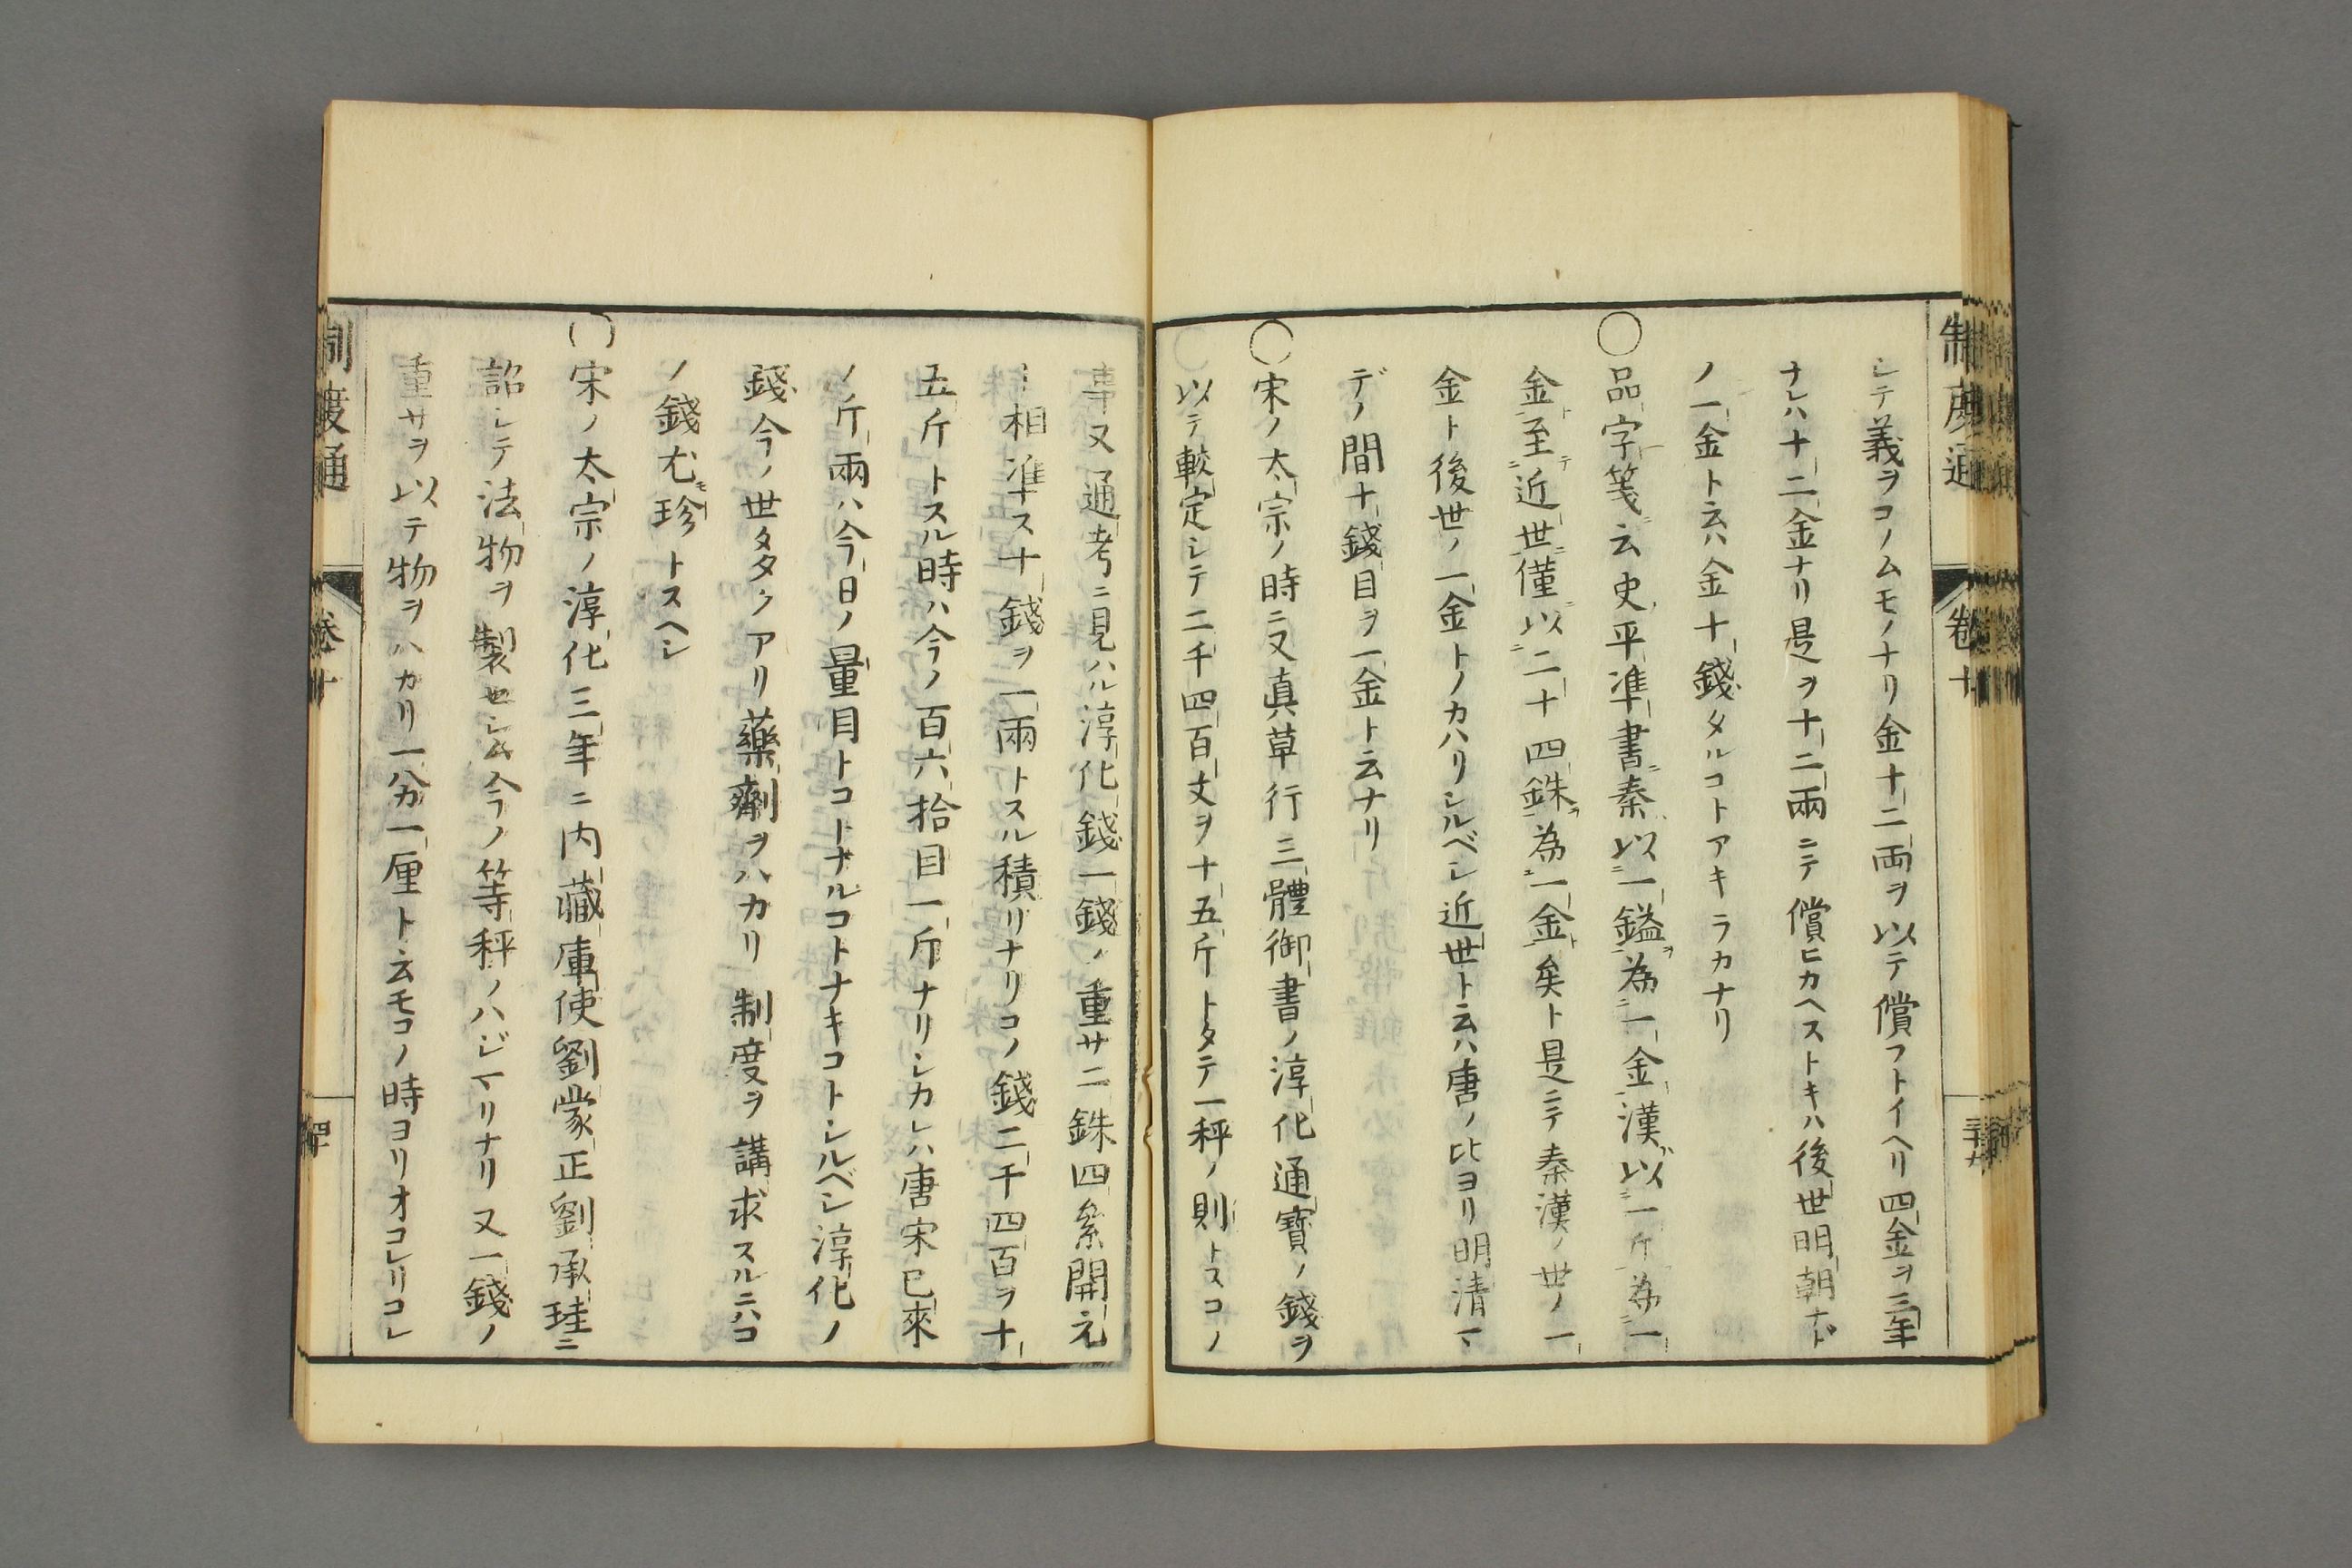 シテ義ヲコノムモノナリ金十二両ヲ以テ償フトイヘリ四金ヲ三年
ナレハ十二金ナリ是ヲ十二兩ニテ償ヒカヘストキハ後世明朝ナド
ノ一金ト云ハ金十錢タルコトアキラカナリ
○品字箋云史平準書秦以一鎰為一金漢以一斤為一
金至近世僅以二十四銖為一金矣ト是ニテ秦漢ノ世ノ一
金ト後世ノ一金トノカハリシルベシ近世ト云ハ唐ノ比ヨリ明清マ
デノ間十錢目ヲ一金ト云ナリ
○宋ノ太宗ノ時ニ又真草行三體御書ノ淳化通寳ノ錢ヲ
以テ較定シテ二千四百丈ヲ十五斤トタテ一秤ノ則トスコノ
事又通考ニ見ハル淳化錢一錢ノ重サ二銖四絫開元
ニ相準ス十錢ヲ一兩トスル積リナリコノ錢二千四百ヲ十
五斤トスル時ハ今ノ百六拾目一斤ナリシカレハ唐宋已來
ノ斤兩ハ今日ノ量目トコトナルコトナキコトシルベシ淳化ノ
錢今ノ世タタクアリ藥劑ヲハカリ制度ヲ講求スルニハコ
ノ錢尤モ珍トスヘシ
○宋ノ太宗ノ淳化三年ニ内藏庫使劉蒙正劉承珪ニ
詔シテ法物ヲ製セシム今ノ等秤ノハジマリナリ又一錢ノ
重サヲ以テ物ヲハカリ一分一厘ト云モコノ時ヨリオコレリコレ
制度通
卷十
四十
制度通
卷十
三十九